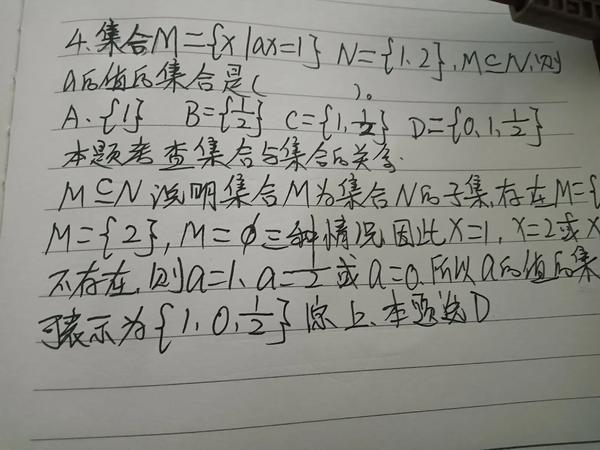 4.集合M={x|ax=1} N={1,2},M⊆N,则
a的值的集合是( )。
A.{1} B={1/2} C={1,1/2} D={0,1,1/2}
本题考查集合与集合的关系.
M⊆N说明集合M为集合N的子集,存在M={
M={2},M=∅三种情况因此X=1,X=2或X
不存在,则a=1、a=1/2或a=0.所以a的值的集
可表示为{1,0,1/2}综上、本题选D